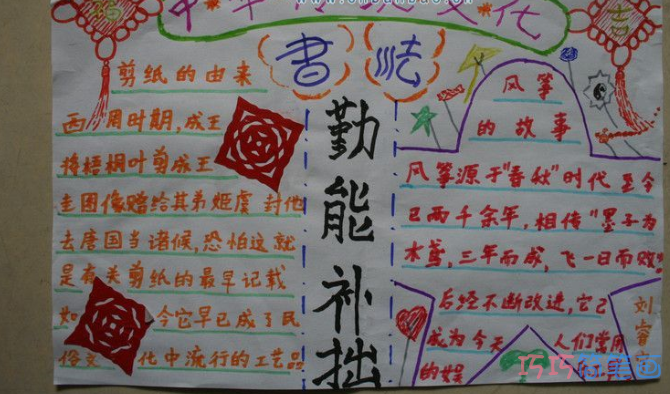 中华
文化
吉
书法
剪纸的由来
西周时期,成王
将梧桐叶剪成玉
圭图像赠给其弟姬虞 封他
去唐国当诸候,恐怕这就
是有关剪纸的最早记载
如 今它早已成了民
俗文 化中流行的工艺品
勤能补拙
风筝
的故事
风筝源于"春秋"时代至今
已两千余年,相传"墨子为
木鸢,三年而成,飞一日而败
后经不断改进,它已
成为今天 人们常用
的娱
刘睿
巧巧简笔画